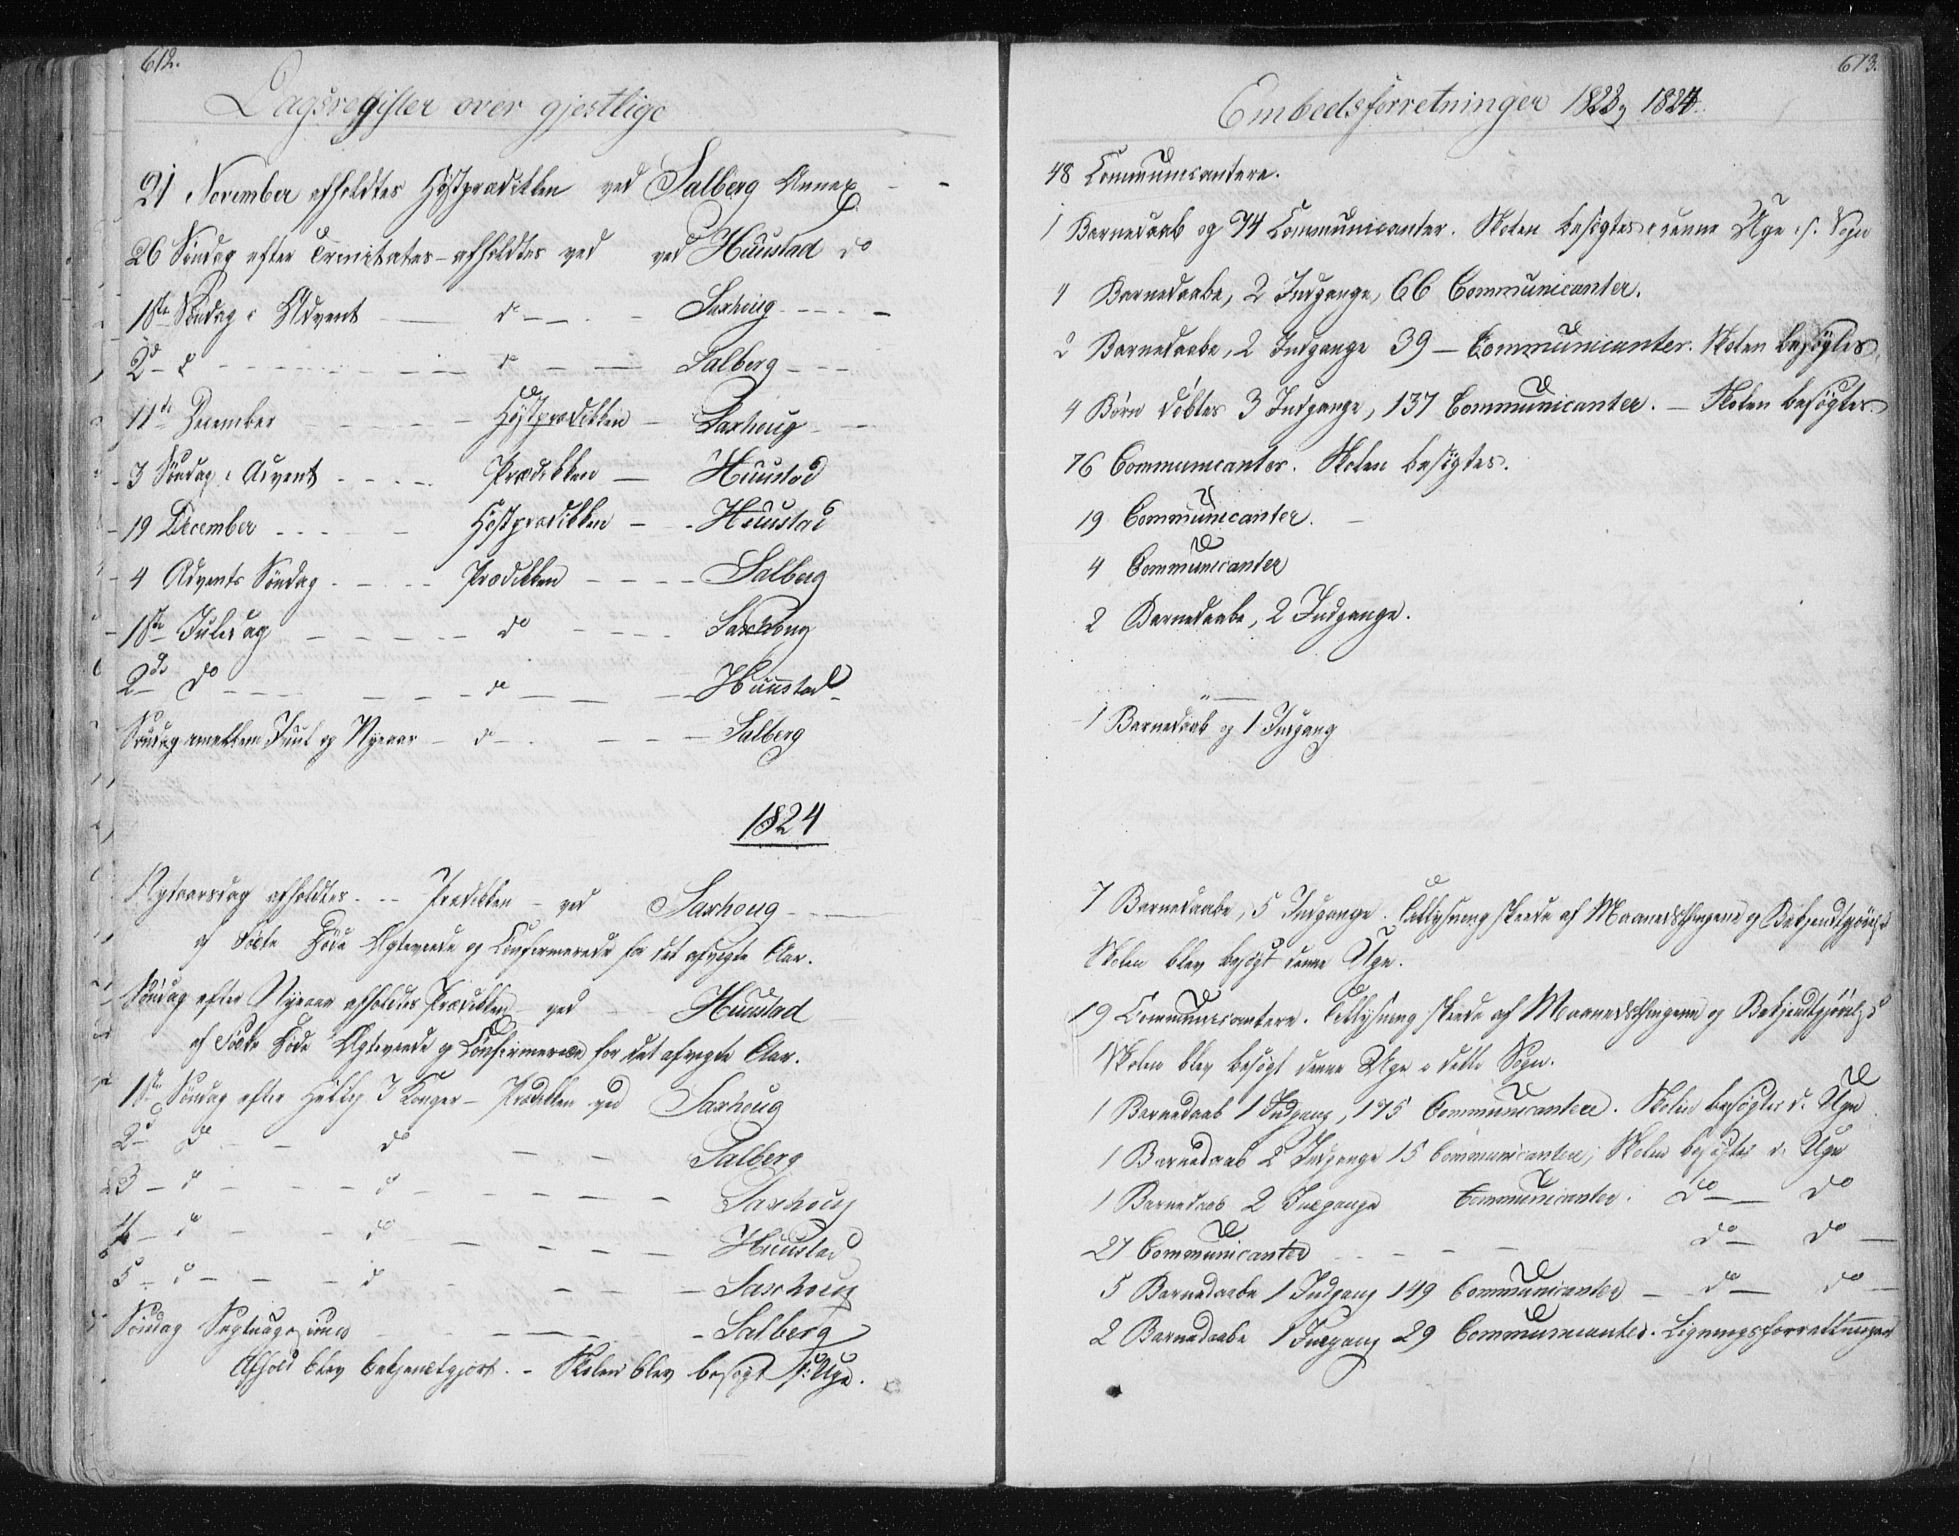 612.
Dagsregister over gjestlige
21 November afholdtes Høstprædiken ved Salberg Annex - -
26 Søndag efter Trinitates - afholdtes ved ved Huustad do
1ste Søndag i Advent - do - - Saxhoug - - - -
2d - do - - - - do - - Salberg - - -
11te December - - - - Høstprædiken - Saxhoug - -
3 Søndag i Advent - - - - Prædiken - Huustad
19 December - - - - Høstprædiken - - Huustad
4 Advents Søndag - - - - Prædiken - - - - Salberg
1ste Juledag - - - - do - - - - Saxhoug
2de do - - - - do - - - Huustad -
Søndag mellem Juul og Nyeaar - do - - - - Salberg
1824
Nytaarsdag afholdtes - - Prædiken - ved Saxhoug - -
af Døbte Døde Ægteviede og Confirmerede for det afvigte Aar.
Søndag efter Nyeaar afholdtes Prædiken - ved - Huustad
af Døbte Døde Ægteviede og Confirmerede for det afvigte Aar.
1ste Søndag efter Hellig 3 Konger - Prædiken ved Saxhoug
2d - do - - do - - Salberg
3 - do - - - do - - - - Saxhoug
4 - do - - do - - - - Huustad
5 - do - - - do - - - - Saxhoug
Søndag Septuagesima - - - - Salberg
Afhold blev bekjendtgjort. - Skolen blev besøgt d: Uge.
613.
Embedsforretninger 1823, 1824.
48 Communicantere.
1 Barnedaab og 74 Communicanter. Skolen besøgtes denne Uge i Sogn
4 Barnedaabe, 2 Indgange, 66 Communicanter.
2 Barnedaabe, 2 Indgange 39 - Communicanter. Skolen besøgtes.
4 Børn døbtes 3 Indgange, 137 Communicanter. - Skolen besøgtes
76 Communicanter. Skolen besøgtes.
19 Communicanter. -
4 Communicanter
2 Barnedaabe, 2 Indgange.
1 Barnedaab og 1 Indgang
7 Barnedaabe, 5 Indgange. Tillysning skeede af Maanedsthingene og Bekjendtgjørelse
Skolen blev besøgt denne Uge.
19 Communicantere. Tillysning skeede af Maanedsthingene og Bekjendtgjørelse
Skolen blev besøgt denne Uge i dette Sogn.
1 Barnedaab 1 Indgang, 175 Communicantere. Skolen besøgtes d. Uge
1 Barnedaab 2 Indgange 15 Communicanter, Skolen besøgtes d. Uge
1 Barnedaab 2 Indgange Communicanter. do - do
21 Communicanter - - - - do - do -
5 Barnedaabe 1 Indgang 149 Communicanter - do - do -
2 Barnedaabe 1 Indgang 29 Communicanter. Ligningsforretningen